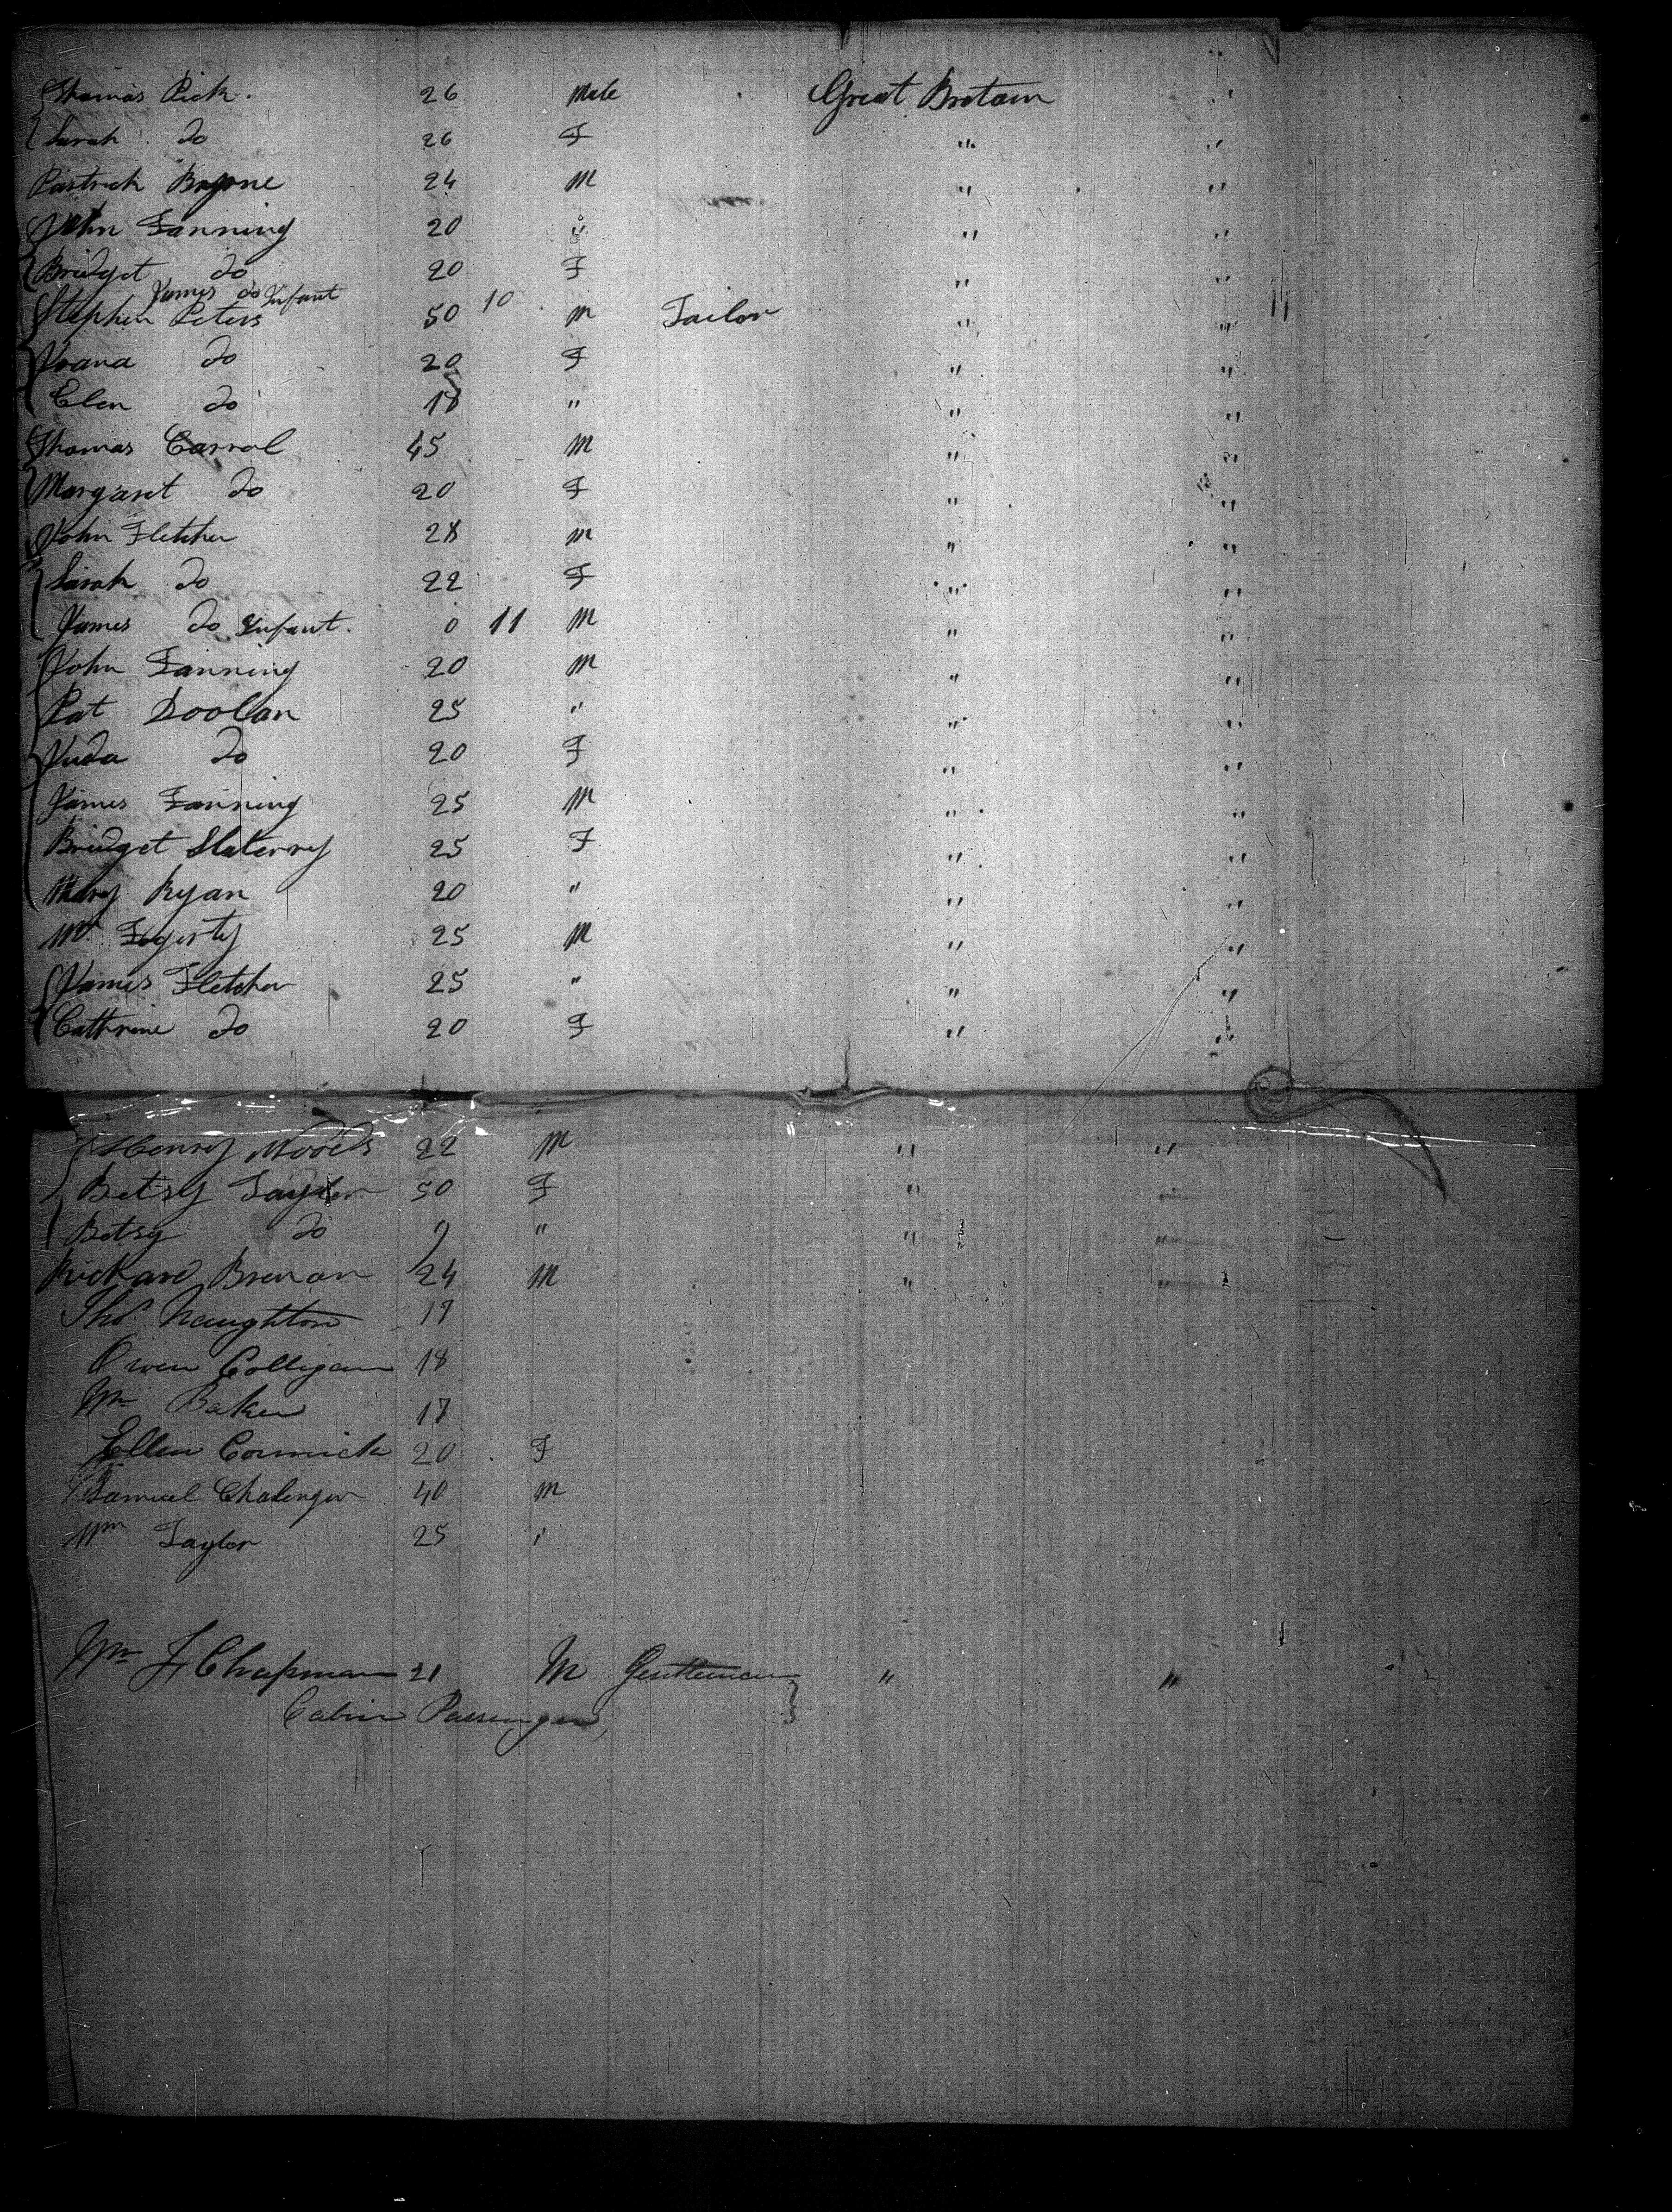 Thomas Pick. 26 Male Great Bretain "
Sarah Do 26 F " "
Pastrick Bryone 24 M " "
John Fanning 20 " " "
Bridget Do 20 F " "
James do Infant 10
Stephen Peters 50 M Tailor " "
Joana Do 20 F " "
Elen Do 18 " " "
Thomas Carrol 45 M " "
Margaret Do 20 F " "
John Fletcher 28 M " "
Sarah Do 22 F " "
James Do Infant. 0 11 M " "
John Fanning 20 M " "
Pat Doolan 25 " " "
Juda Do 20 F " "
James Fanning 25 M " "
Bridget Slaterry 25 F " "
Mary Ryan 20 " " "
Wm Fogerty 25 M " "
James Fletcher 25 " " "
Cathrine Do 20 F " "
Henry Woods 22 M " "
Betsy Taylor 50 F " "
Betsy Do 9 " " "
Richard Brenan 24 M " "
Thos Naughton 17
Owen Colligan 18
Wm Baker 17
Ellen Cormick 20 F
Samuel Chalenger 40 M
Wm Taylor 25 "
Wm F Chapman 21 M Gentleman " "
Cabin Passenger,